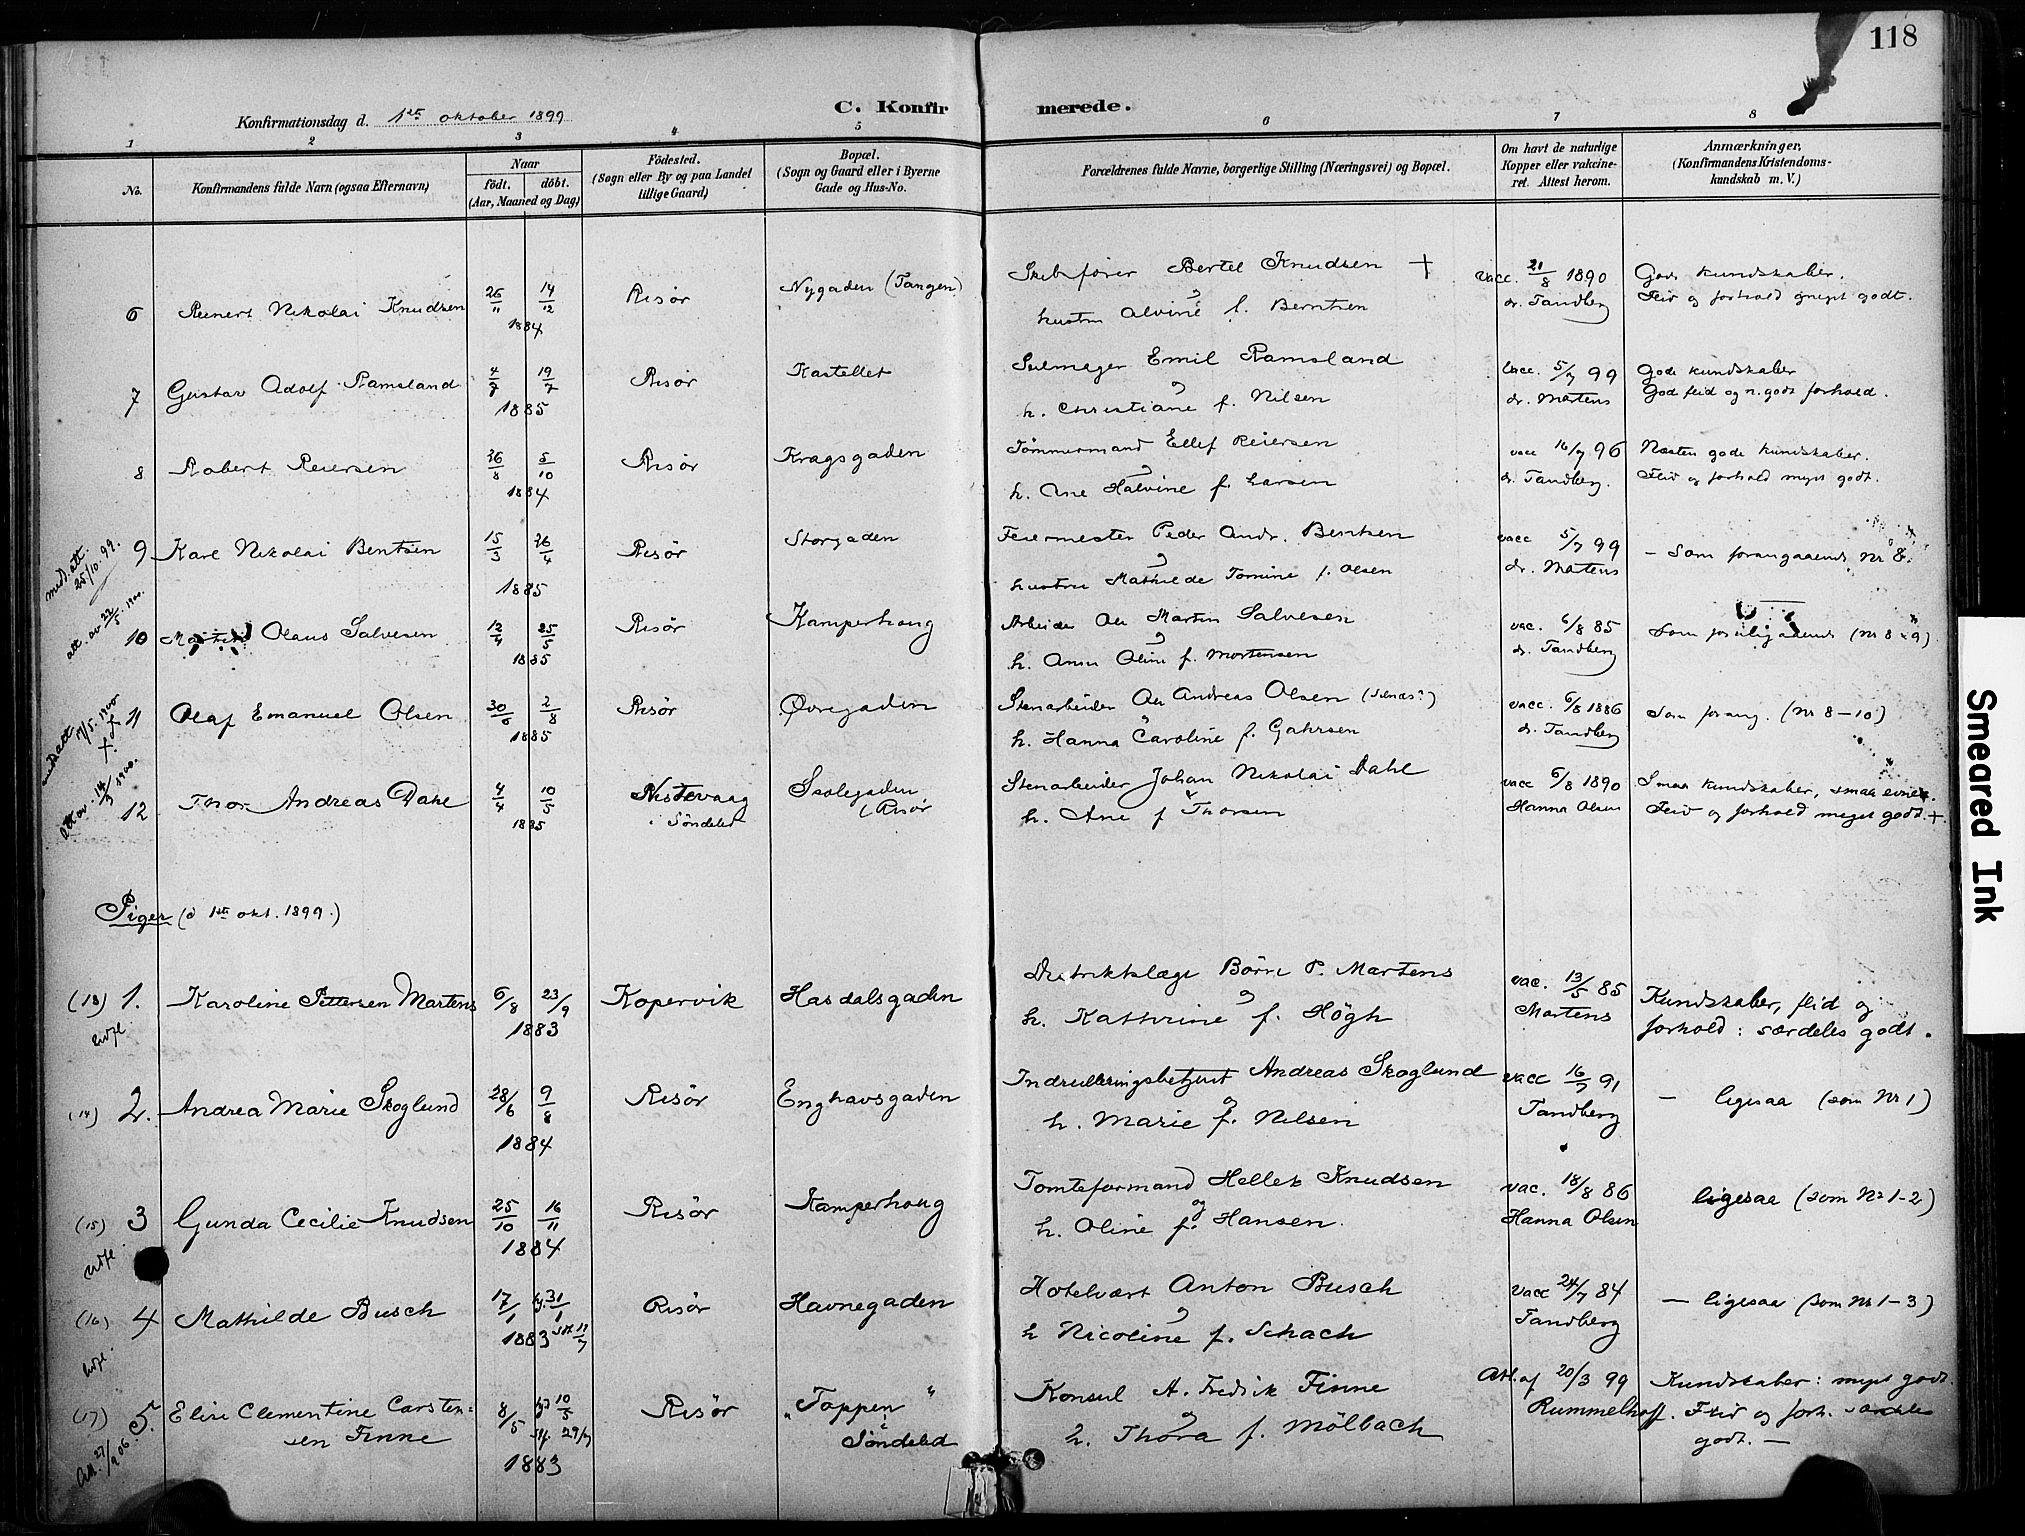 118
C. Konfirmerede.
Konfirmationsdag d. 1ste oktober 1899
1 2 3 4 5 6 7 8
No.
Konfirmandens fulde Navn (ogsaa Efternavn)
Naar
födt. döbt.
(Aar, Maaned og Dag)
Födested.
(Sogn eller By og paa Landet
tillige Gaard)
Bopæl.
(Sogn og Gaard eller i Byerne
Gade og Hus-No.
Forældrenes fulde Navne, borgerlige Stilling (Næringsvei) og Bopæl.
Om havt de naturlige
Kopper eller vakcine-
ret. Attest herom.
Anmærkninger,
(Konfirmandens Kristendoms-
kundskab m. V.)
6 Reinert Nikolai Knudsen 26/11 14/12 1884 Risør Nygaden (Tangen)
Skibsfører Bertel Knudsen +
og
hustru Alvine f. Berntsen
vacc. 21/8 1890
dr. Tandberg
Gode kundskaber.
Flid og forhold meget godt.
7 Gustav Adolf Ramsland 4/7 19/7 1885 Risør Kastellet
Seilmager Emil Ramsland
og
h. Christiane f. Nilsen
Vacc. 5/7 99
dr. Martens
Gode kundskaber
God flid og n. godt forhold.
8 Robert Reiersen 26/8 5/10 1884 Risør Kragsgaden
Tömmermand Ellef Reiersen
og
h. Ane Halvine f. Larsen
vacc 16/7 96
dr. Tandberg.
Næsten gode kundskaber.
Flid og forhold meget godt.
medd. att.
25/10. 99.
9 Karl Nikolai Bentsen 15/3 26/4 1885 Risør Storgaden
Feiermester Peder Andr. Bentsen
og
hustru Mathilde Tomine f. Olsen
vacc 5/7 99
dr. Martens
- Som forangaaende Nr 8.
att. av 22/5. 1900.
10 Olaus Salvesen 12/4 25/5 1885 Risør Kamperhoug
Arbeider Ole Martin Salvesen
og
h. Anne Oline f. Mortensen
vac. 6/8 85
dr. Tandberg
Som (Nr 8 & 9)
medd att 17/5. 1900
11 Olaf Emanuel Olsen 30/6 2/8 1885 Risør Øvregaden
Stenarbeider Ole Andreas Olsen
og
h. Hanna Caroline f. Gahrsen
vacc. 6/8 1886
dr. Tandberg
Som forang. (Nr 8-10)
Att av. 14/3 1900.
12 Thor Andreas Dahl 4/4 10/5 1885
i Söndeled
Skolegaden
(Risør
Stenarbeider Johan Nikolai Dahl
og
h. Ane f Thorsen
vacc 6/8 1890
Hanna Olsen
Smaa kundskaber, smaa evner.
Flid og forhold meget godt. +
Piger (d 1ste okt. 1899.)
(13) 1. Karoline Pettersen Martens 6/8 23/9 1883 Kopervik Hasdalsgaden
Distriktslæge Börre P. Martens
og
h. Kathrine f. Högh
vac. 13/5 85
Martens
Kundskaber, flid og
forhold: særdeles godt.
(14) 2. Andrea Marie Skoglund 28/6 9/8 1884 Risør Enghavsgaden
Indrulleringsbetjent Andreas Skoglund
og
h. Marie f. Nilsen
vacc 16/7 91
Tandberg
- ligesaa (som Nr 1)
(15) 3 Gunda Cecilie Knudsen 25/10 16/11 1884 Risør Kamperhoug
Tomteformand Hellek Knudsen
og
h. Oline f. Hansen.
vac. 18/8 86
Hanna Olsen
ligesaa (som Nr 1-2)
(16) 4 Mathilde Busch 17/1 31/1 1883 Risør Havnegaden
Hotelvært Anton Busch
og
h Nicoline f. Schach
Vacc 24/7 84
Tandberg
- ligesaa (som Nr 1-3)
(17) 5. Elise Clementine Carsten=
sen Finne
8/5 10/5 29/7 1883 Risør
"Toppen"
i
Söndeled
Konsul A. Fredrik Finne
og
h. Thora f. Mölbach
Att. af 20/3 99
Rummelhoff.
Kundskaber: meget godt.
Flid og forh. særdeles
godt. -
Att. 27/9 06
Smeared Ink